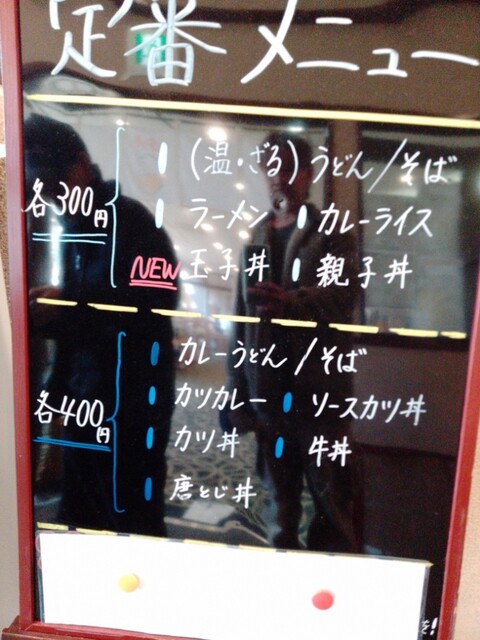 定番メニュー
各300円
(温・ざる)うどん/そば
ラーメン カレーライス
NEW 玉子丼 親子丼
各400円
カレーうどん/そば
カツカレー ソースカツ丼
カツ丼 牛丼
唐とじ丼